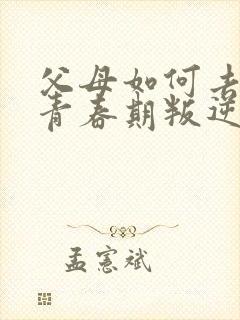 父母如何去
青春期叛逆
孟宪斌